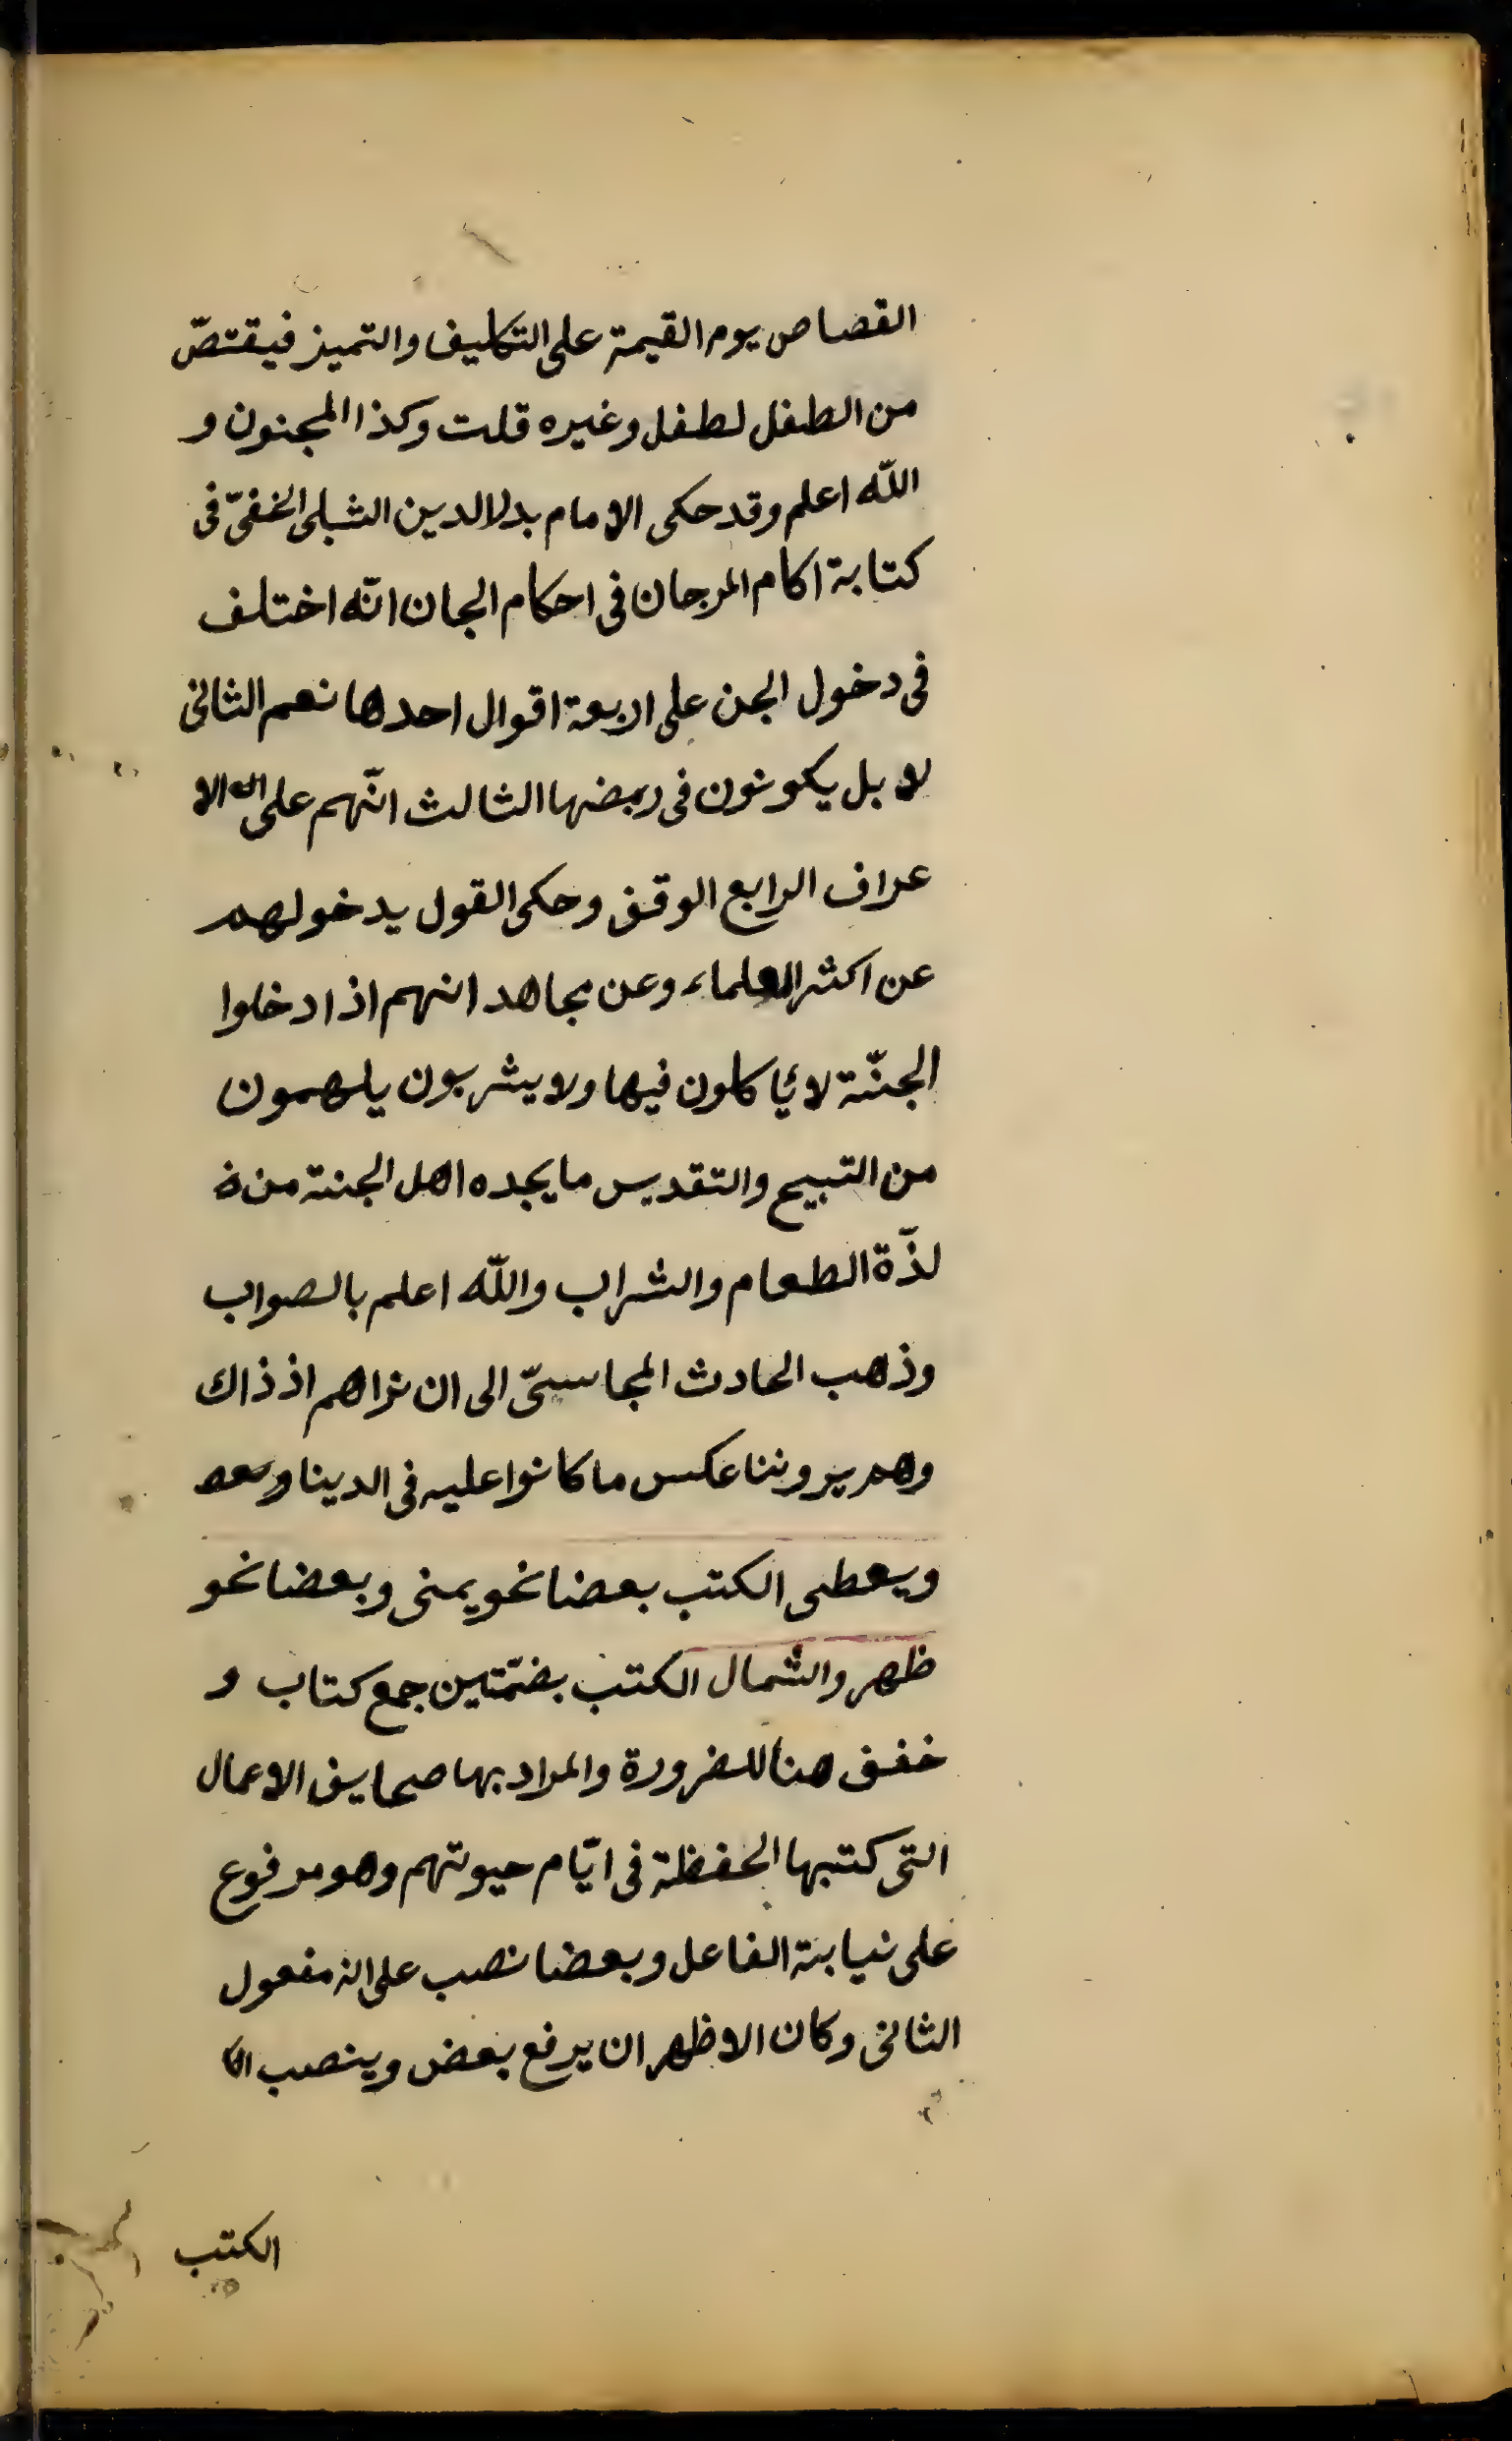 القصاص يوم القيمة على التكليف والتميز فيقتصّ
من الطفل لطفل وغيره قلت وكذا المجنون و
اللّه اعلم وقد حكى الامام بدلالدين الشبلى الخفىّ فى
كتابة اكام المرجان فى احكام الجان انّه اختلف
فى دخول الجن على اربعة اقوال احدها نعم الثانى
لا بل يكونون فى ربضها الثالث انّهم على الا
عراف الرابع الوقف وحكى القول يدخولهم
عن اكثر العلماء وعن مجاهد انهم اذا دخلوا
الجنّة لا يأكلون فيها ولا يشربون يلهمون
من التبيح والتقديس ما يجده اهل الجنة من
لذّة الطعام والشراب واللّه اعلم بالصواب
وذهب الحادث المجاسىّ الى ان نراهم اذ ذاك
وهم يروننا عكس ما كانوا عليه فى الدينا
ويعطى الكتب بعضا نحو يمنى وبعضا نحو
ظهر والشمال الكتب بضمّتين جمع كتاب و
خفف هنا للضرورة والمراد بها صحايف الاعمال
التى كتبها الحفظة فى ايّام حيوتهم وهو مرفوع
على نيابة الفاعل وبعضا نصب على انه مفعول
الثانى وكان الاظهر ان يرفع بعض وينصب
الكتب